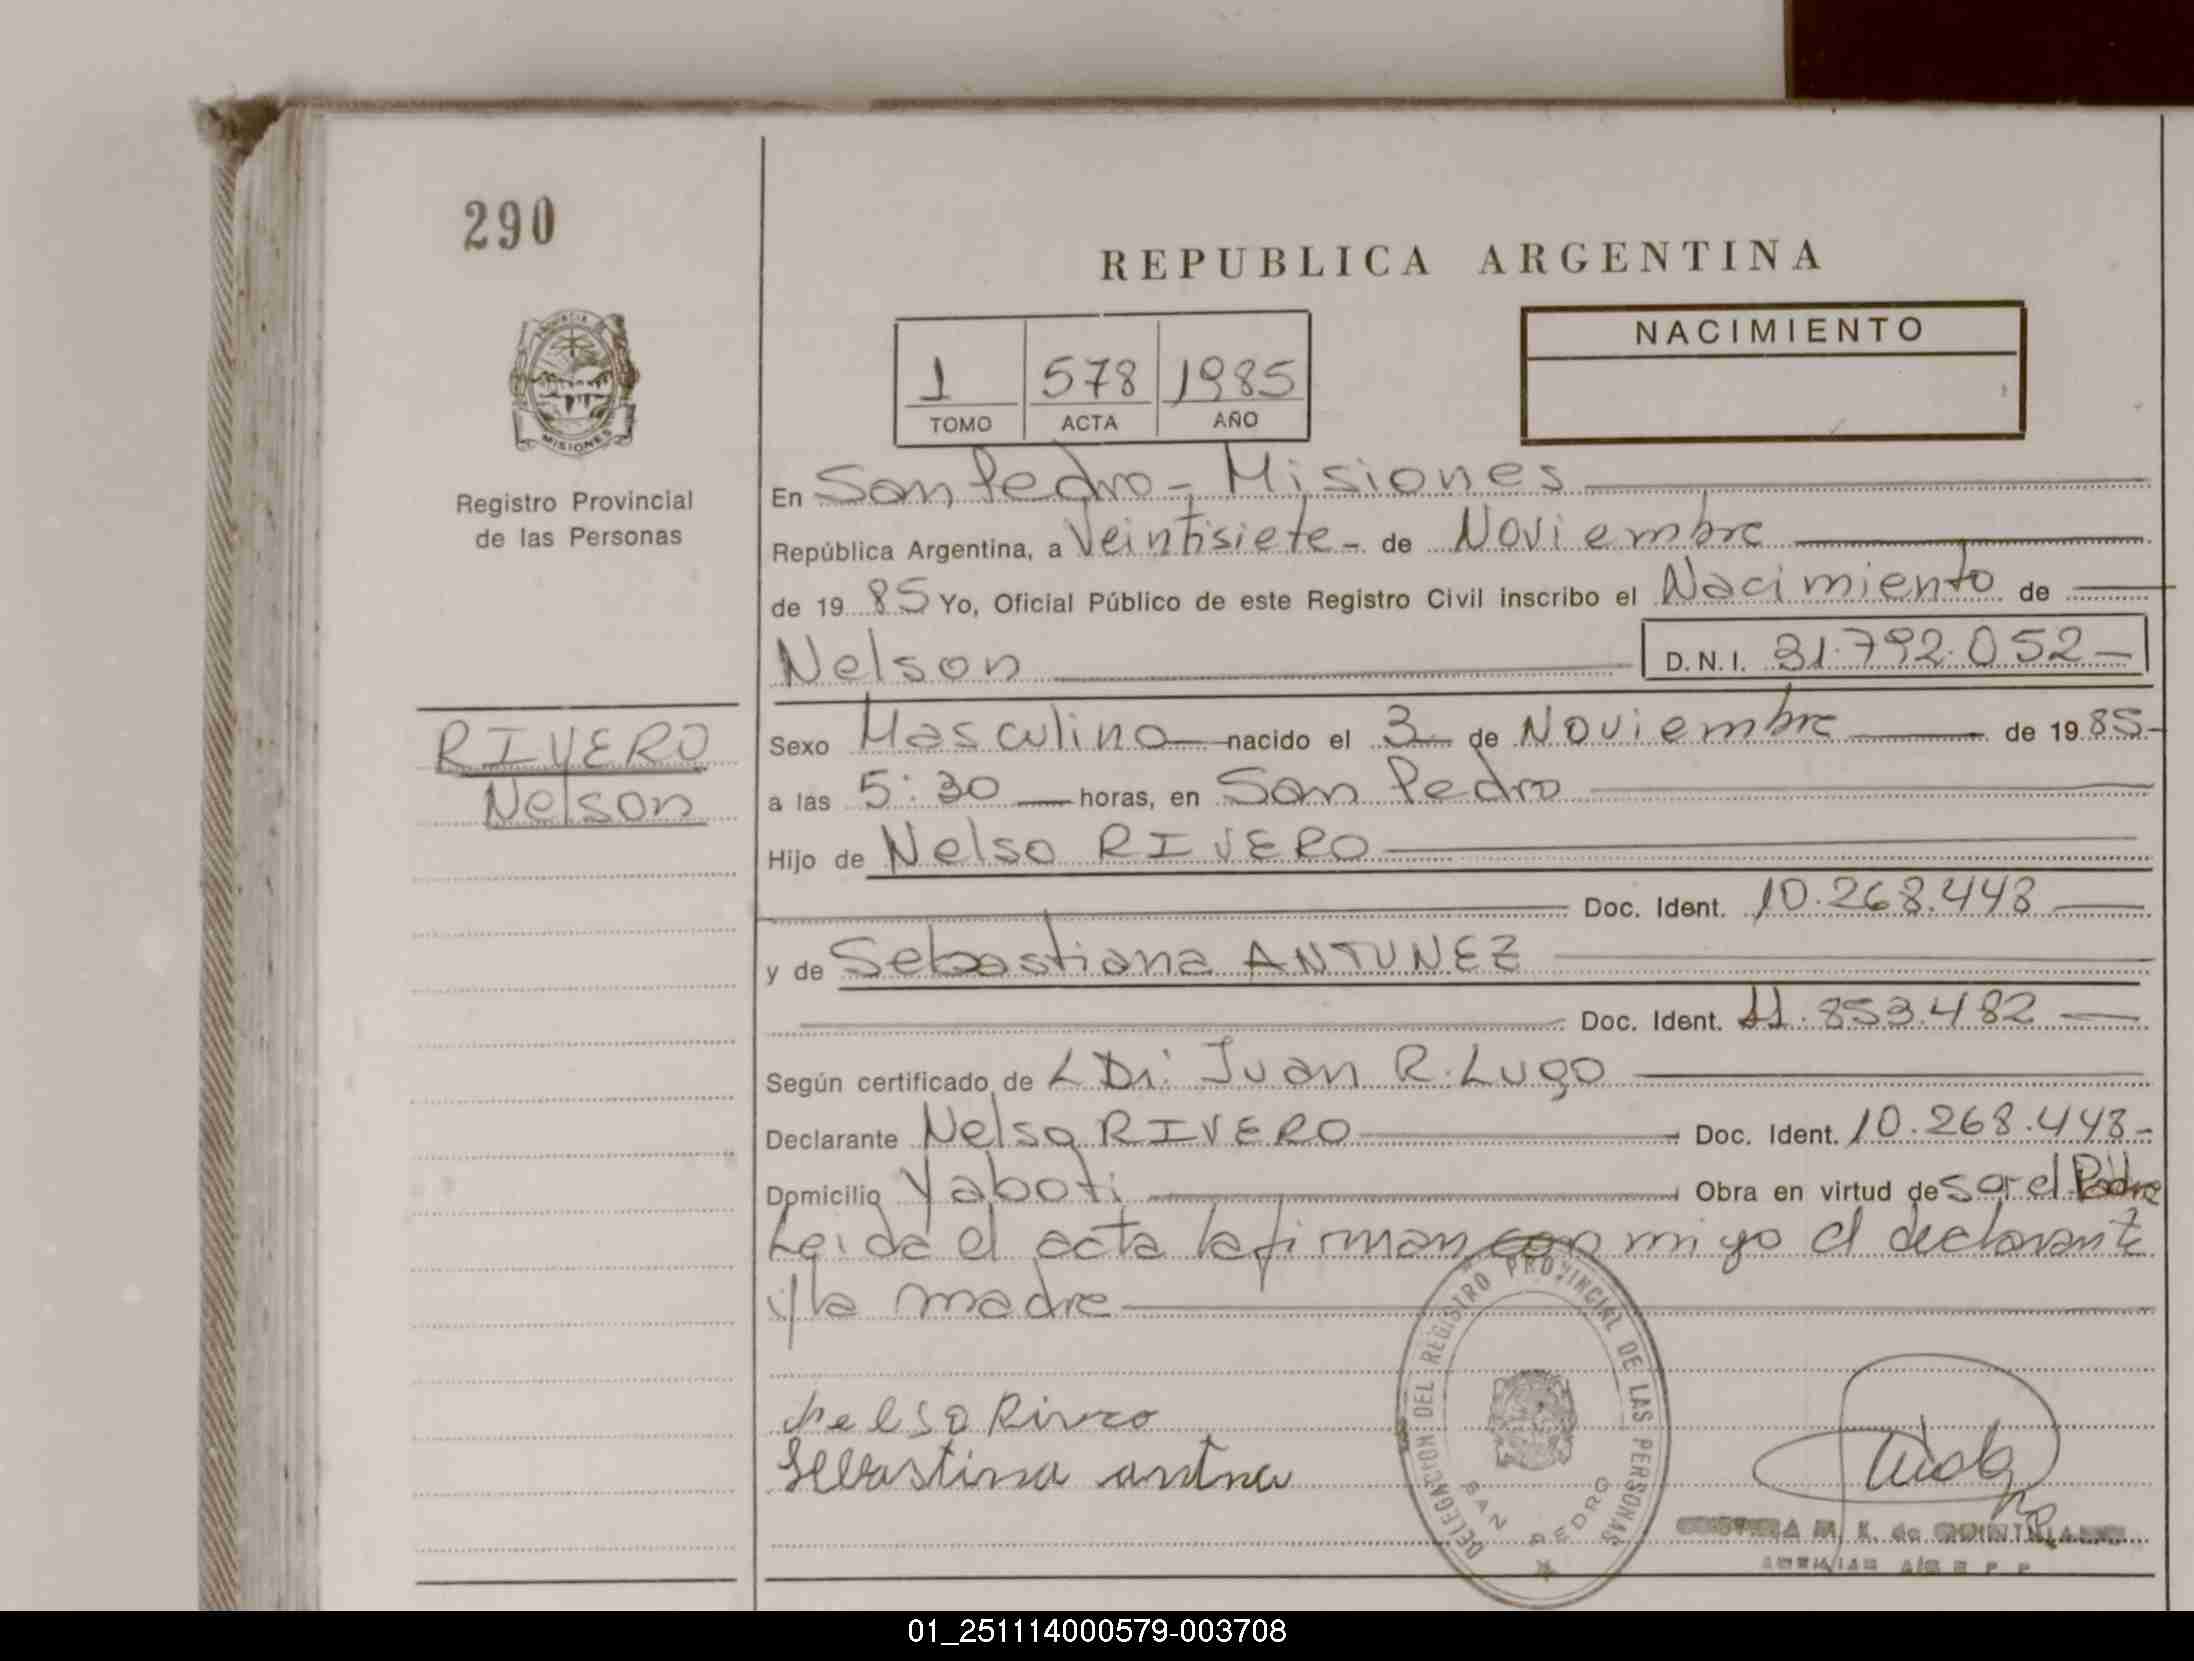 290
REPUBLICA ARGENTINA
NACIMIENTO
1 578 1985
TOMO ACTA AÑO
MISIONES
Registro Provincial
de las Personas
En San Pedro - Misiones
República Argentina, a Veintisiete - de Noviembre
de 19 85 Yo, Oficial Público de este Registro Civil inscribo el Nacimiento de
Nelson D.N.I. 31.792.052
RIVERO
Nelson
Sexo Masculino nacido el 3 de Noviembre de 19 85
a las 5:30 horas, en San Pedro
Hijo de Nelso RIVERO
Doc. Ident. 10.268.448
y de Sebastiana ANTUNEZ
Doc. Ident. 11.853.482
Según certificado de Juan R. Lugo
Declarante Nelso RIVERO Doc. Ident. 10.268.448
Domicilio Yaboti Obra en virtud de Ser el Padre
Leida el acta la firman con migo el declarante
y la madre
Nelso Rivero
DELEGACION DEL REGISTRO PROVINCIAL DE LAS PERSONAS
SAN PEDRO
01_251114000579-003708